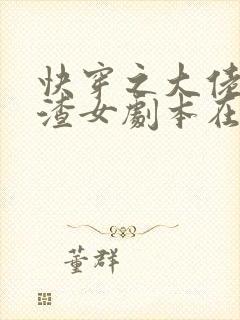 快穿之大佬
渣女剧本在
董群